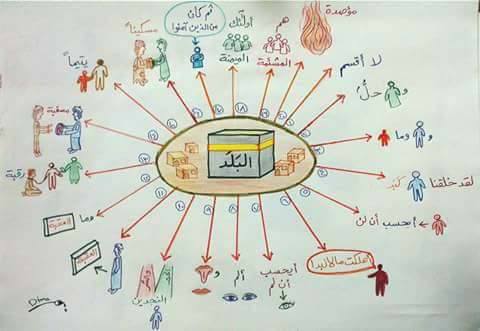 البَلَد
لا أقسم
و حلٌّ
و وما
لقد خلقنا كبد
أيحسب أن لن
أهلكت مالا لبدا
أيحسب
أن لم
ألم
و
النجدين
العقبة
وما
العقبة
رقبة
مسغبة
يتيماً
مسكيناً
ثم كان
من الذين آمنوا
أولئك
الميمنة
هم
المشئمة
مؤصدة